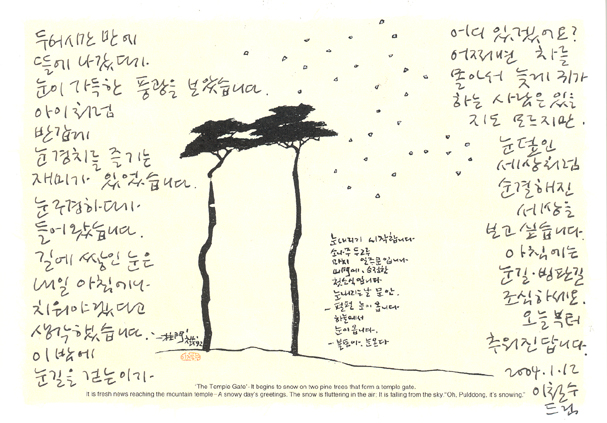 두어시간 만에
뜰에 나갔더니
눈이 가득한 풍광을 보았습니다.
아이처럼
반갑게
눈경치를 즐기는
재미가 있었습니다.
눈구경하다가
들어왔습니다.
길에 쌓인 눈은
내일 아침에나
치워야겠다고
생각했습니다.
이 밤에
눈길을 걷는이가
어디 있겠어요?
어쩌면 차를
몰아서 늦게 귀가
하는 사람은 있을
지도 모르지만.
눈덮인
세상처럼
순결해진
세상을
보고싶습니다.
아침에는
눈길·빙판길
조심하세요.
오늘부터
추워진답니다.
2004.1.12
이철수
드림
눈내리기 시작합니다
소나무 두그루
마치 일주문입니다
산택에, 신선한
첫소식입니다
눈내리는날 문안.
- 펄펄 눈이 옵니다
하늘에서
눈이옵니다.
- 불돌아, 눈온다
'The Temple Gate'- It begins to snow on two pine trees that form a temple gate.
It is fresh news reaching the mountain temple - A snowy day's greetings. The snow is fluttering in the air. It is falling from the sky."Oh, Pulddong, it's snowing."